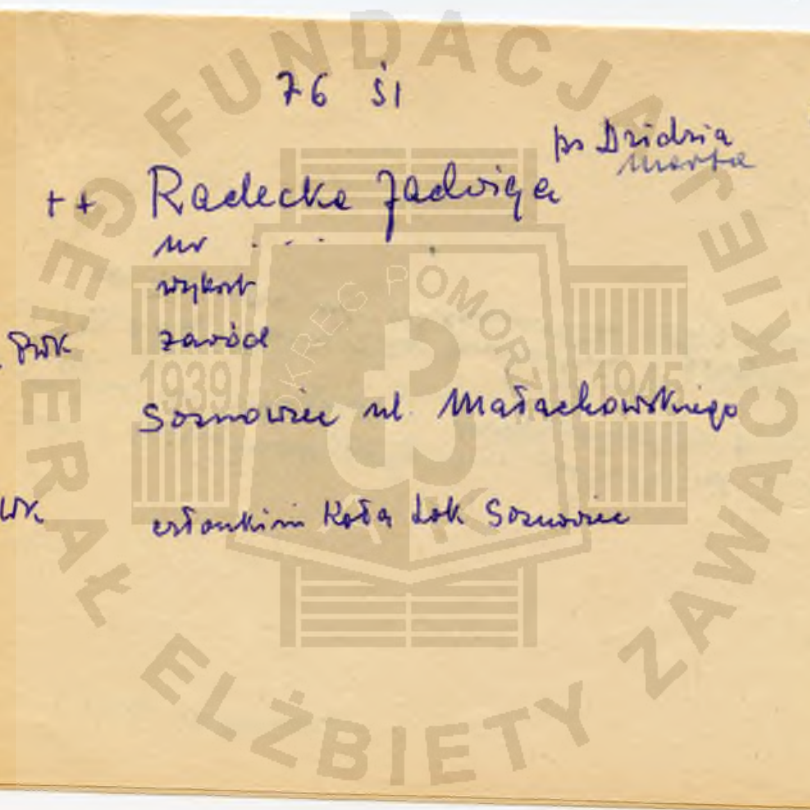 76 Śl
ps Dzidzia
Marta
++ Radecka Jadwiga
ur . . .
wykszt
PWK zawód
Sosnowiec ul. Małachowskiego
WK członkini Koła Lok Sosnowiec
FUNDACJA
GENERAŁ ELŻBIETY ZAWACKIEJ
OKRĘG POMORZE
1939 1945
AK